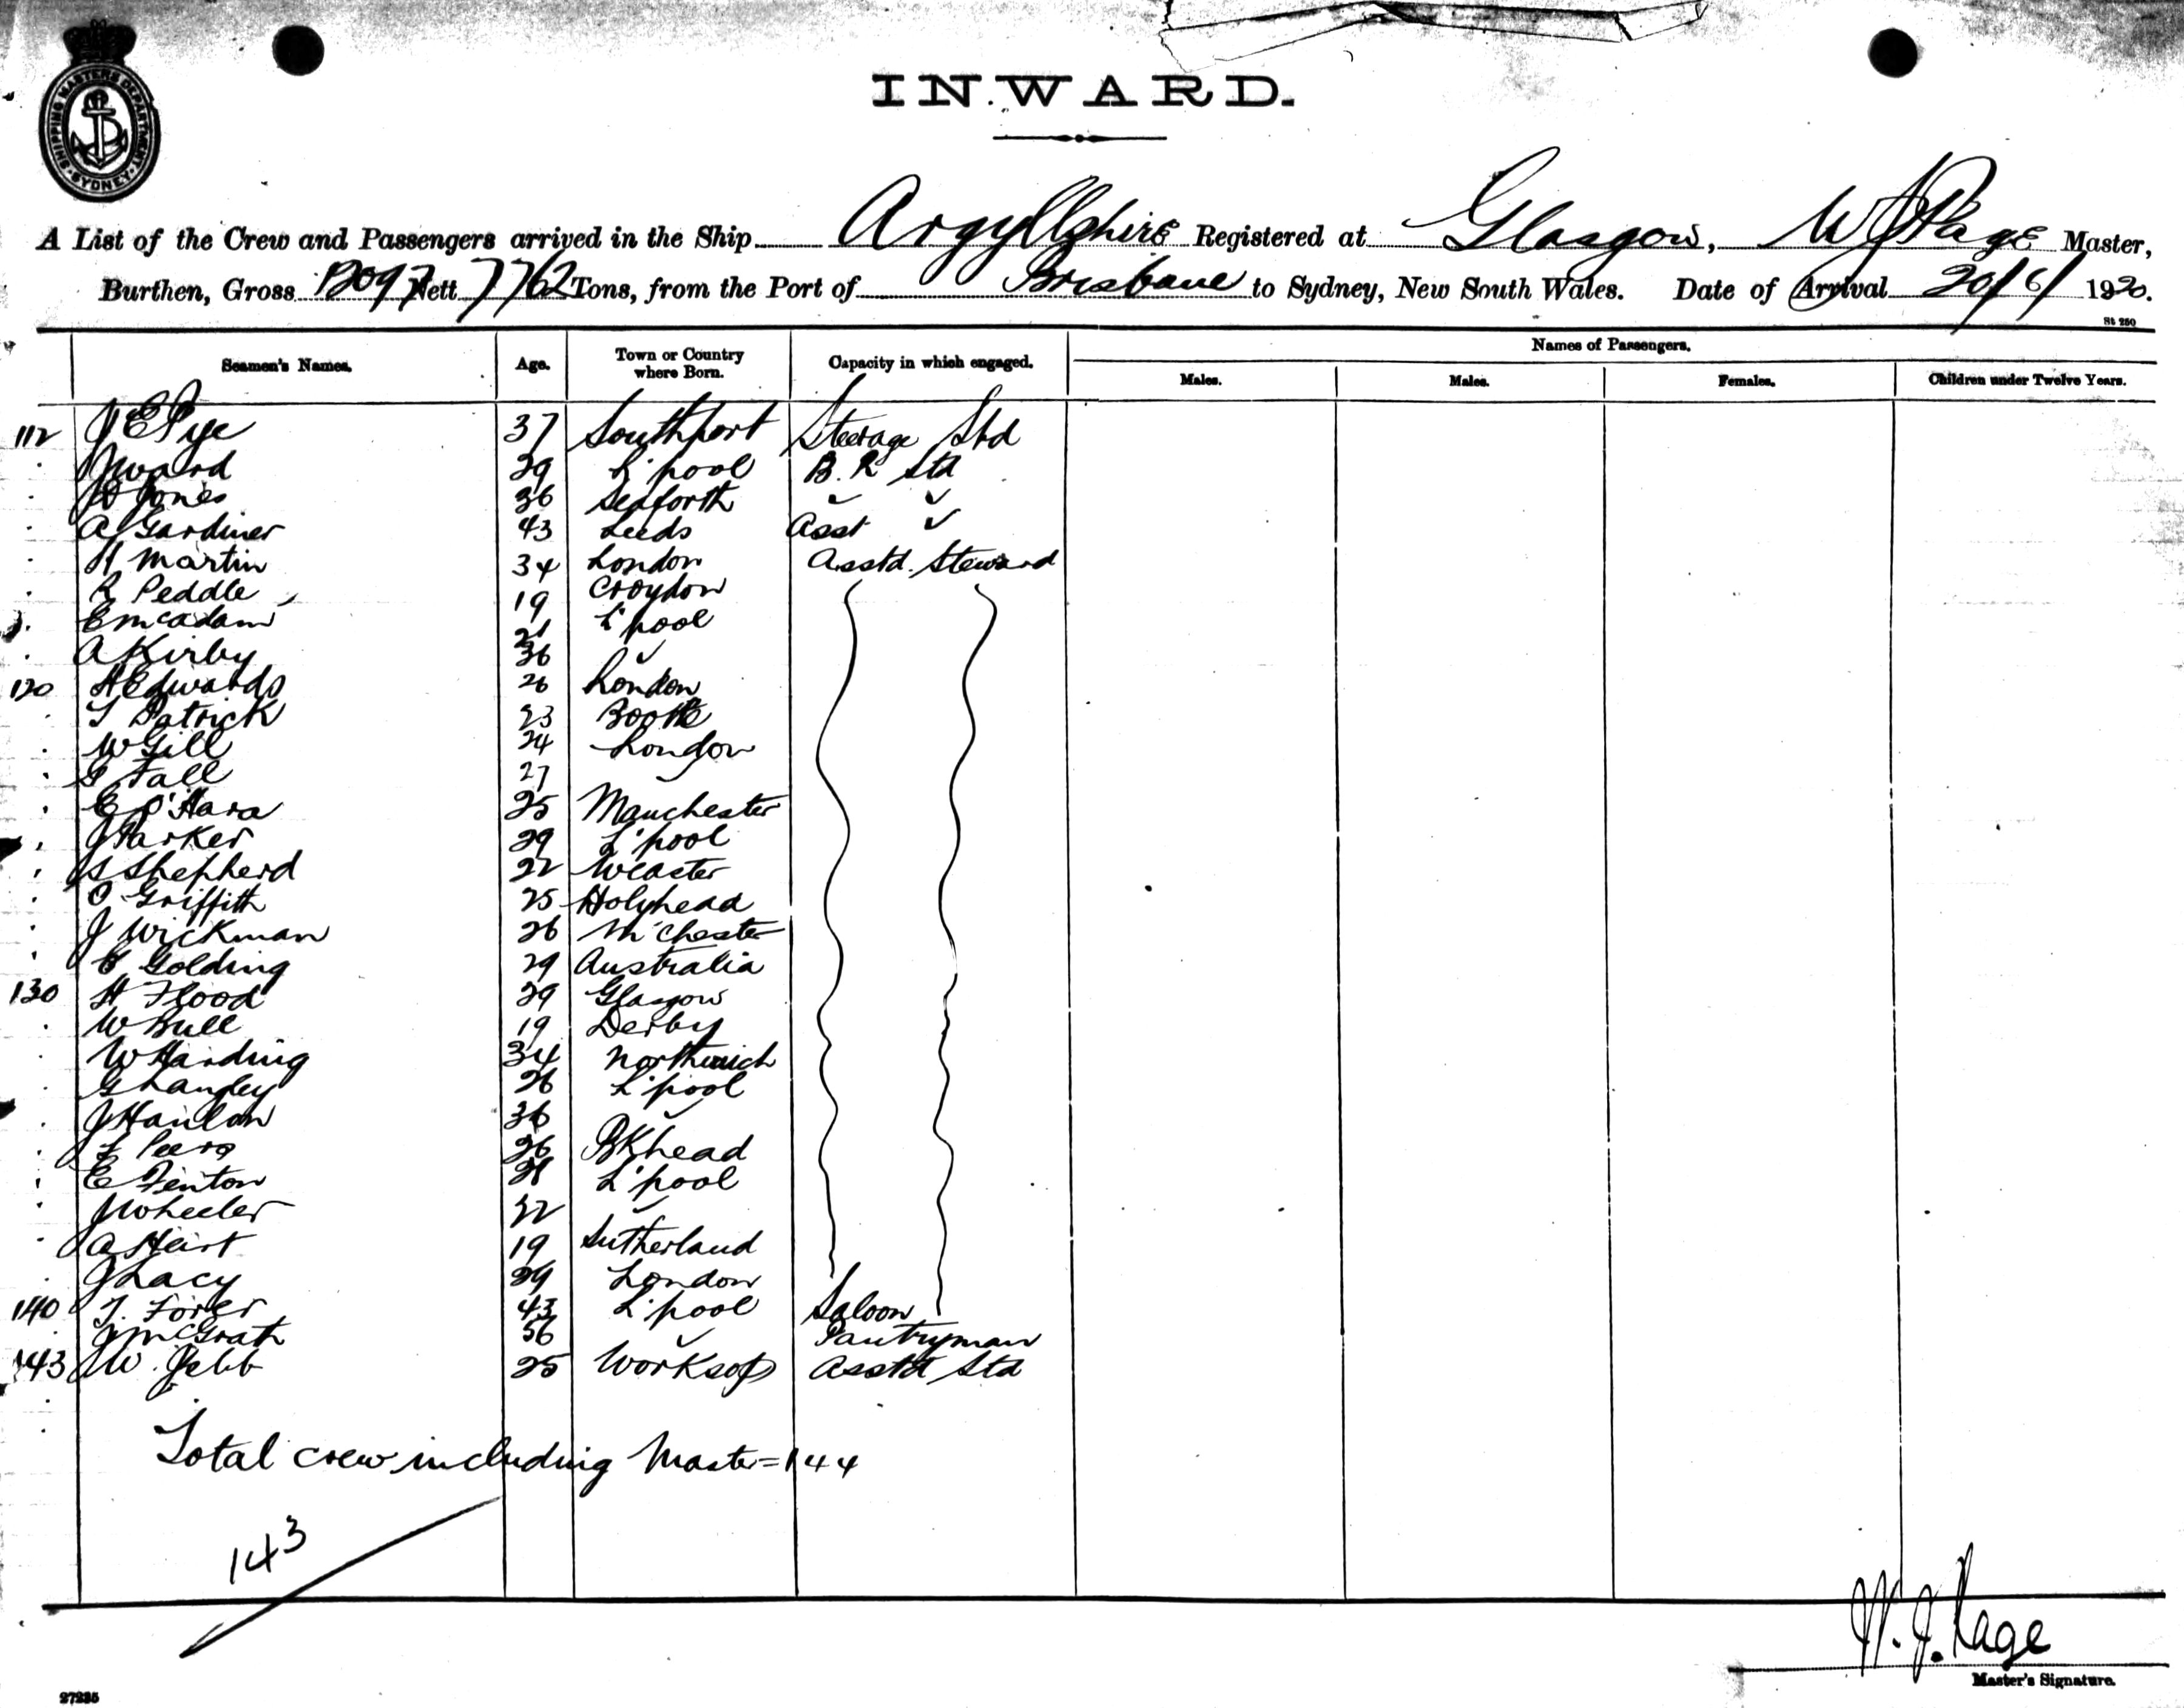 SHIPPING MASTERS DEPARTMENT SYDNEY
INWARD.
A List of the Crew and Passengers arrived in the Ship Argyllshire Registered at Glasgow, W J Page Master,
Burthen, Gross 12097 Nett 7762 Tons, from the Port of Brisbane to Sydney, New South Wales. Date of Arrival 20/6/1920.
St 250
Seamen's Names. Age. Town or Country where Born. Capacity in which engaged. Names of Passengers.
Males. Males. Females. Children under Twelve Years.
112 J E Pye 37 Southport Steerage Std
J Ward 29 L'pool B. R Std
Jones 36 Seaforth " "
A Gardiner 43 Leeds Asst "
H Martin 34 London Asstd. Steward
R Peddle 19 Croydon
E McAdam 21 L'pool
A Kirby 36 "
120 H Edwards 26 London
T Patrick 23 Bootle
W Gill 24 London
G Fall 27 "
E O'Hara 25 Manchester
J Parker 29 L'pool
S Shepherd 22 Weaster
O Griffith 25 Holyhead
J Wickman 26 M'chester
Golding 29 Australia
130 H Flood 29 Glasgow
W Bull 19 Derby
W Harding 34 Northwich
G Langley 26 L'pool
J Hanlon 36 "
L Peers 26 BKhead
E Fenton 21 L'pool
J Wheeler 32 "
A Heist 19 Sutherland
J Lacy 29 London
140 T. Forer 43 L'pool Saloon
J McGrath 56 " Pantryman
143 W. Jebb 25 Worksop Asstd Std
Total crew including Master = 144
143
W. J. Page
Master's Signature.
27235